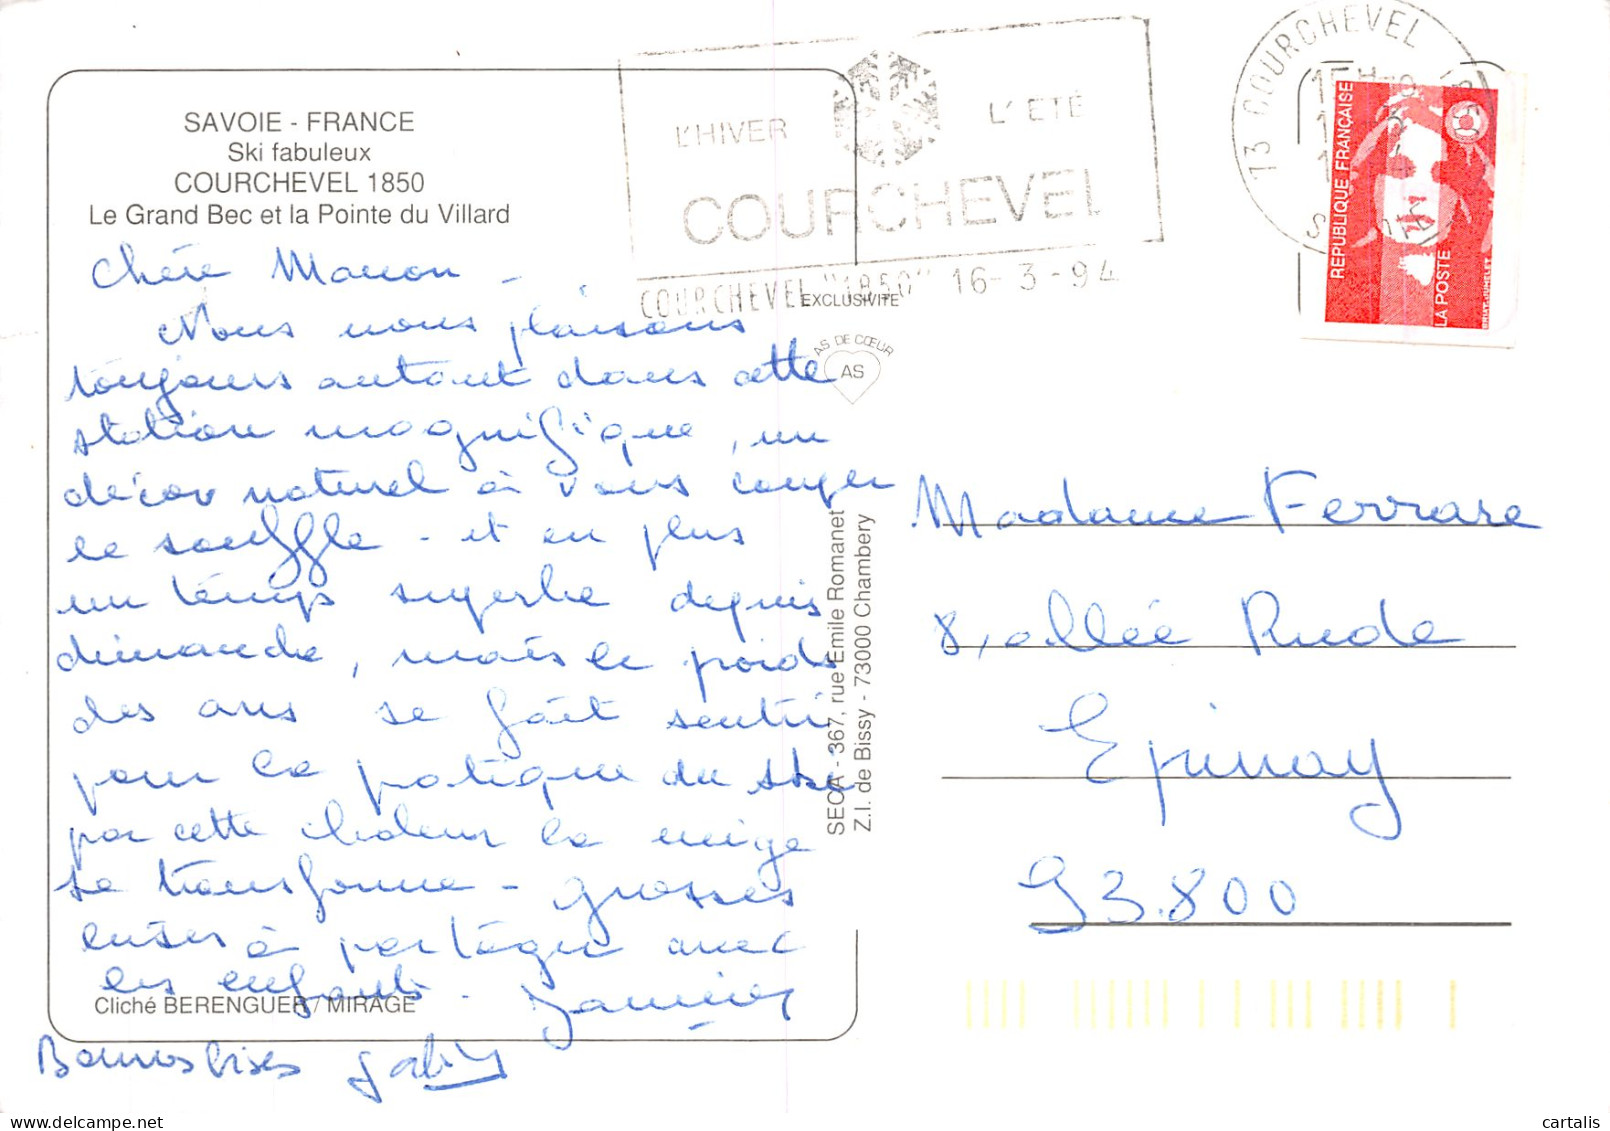 SAVOIE - FRANCE
Ski fabuleux
COURCHEVEL 1850
Le Grand Bec et la Pointe du Villard
Chère Manon -
Nous nous plaisons
toujours autant dans cette
station magnifique, un
décor naturel à vous couper
le souffle - et en plus
un temps superbe depuis
dimanche, mais le poids
des ans se fait sentir
pour la pratique du ski
par cette chaleur la neige
se transforme - grosses
bises à partager avec
les enfants -
Cliché BERENGUER / MIRAGE
Bonnes bises
L'HIVER L'ÉTÉ
COURCHEVEL
COURCHEVEL "1850" 16-3-94
73 COURCHEVEL 1850
RÉPUBLIQUE FRANÇAISE
LA POSTE
EXCLUSIVITÉ
AS DE CŒUR
AS
SECA - 367, rue Emile Romanet
Z.I. de Bissy - 73000 Chambery
Madame Ferrare
8, allée Rude
Epinay
93.800
cartalis